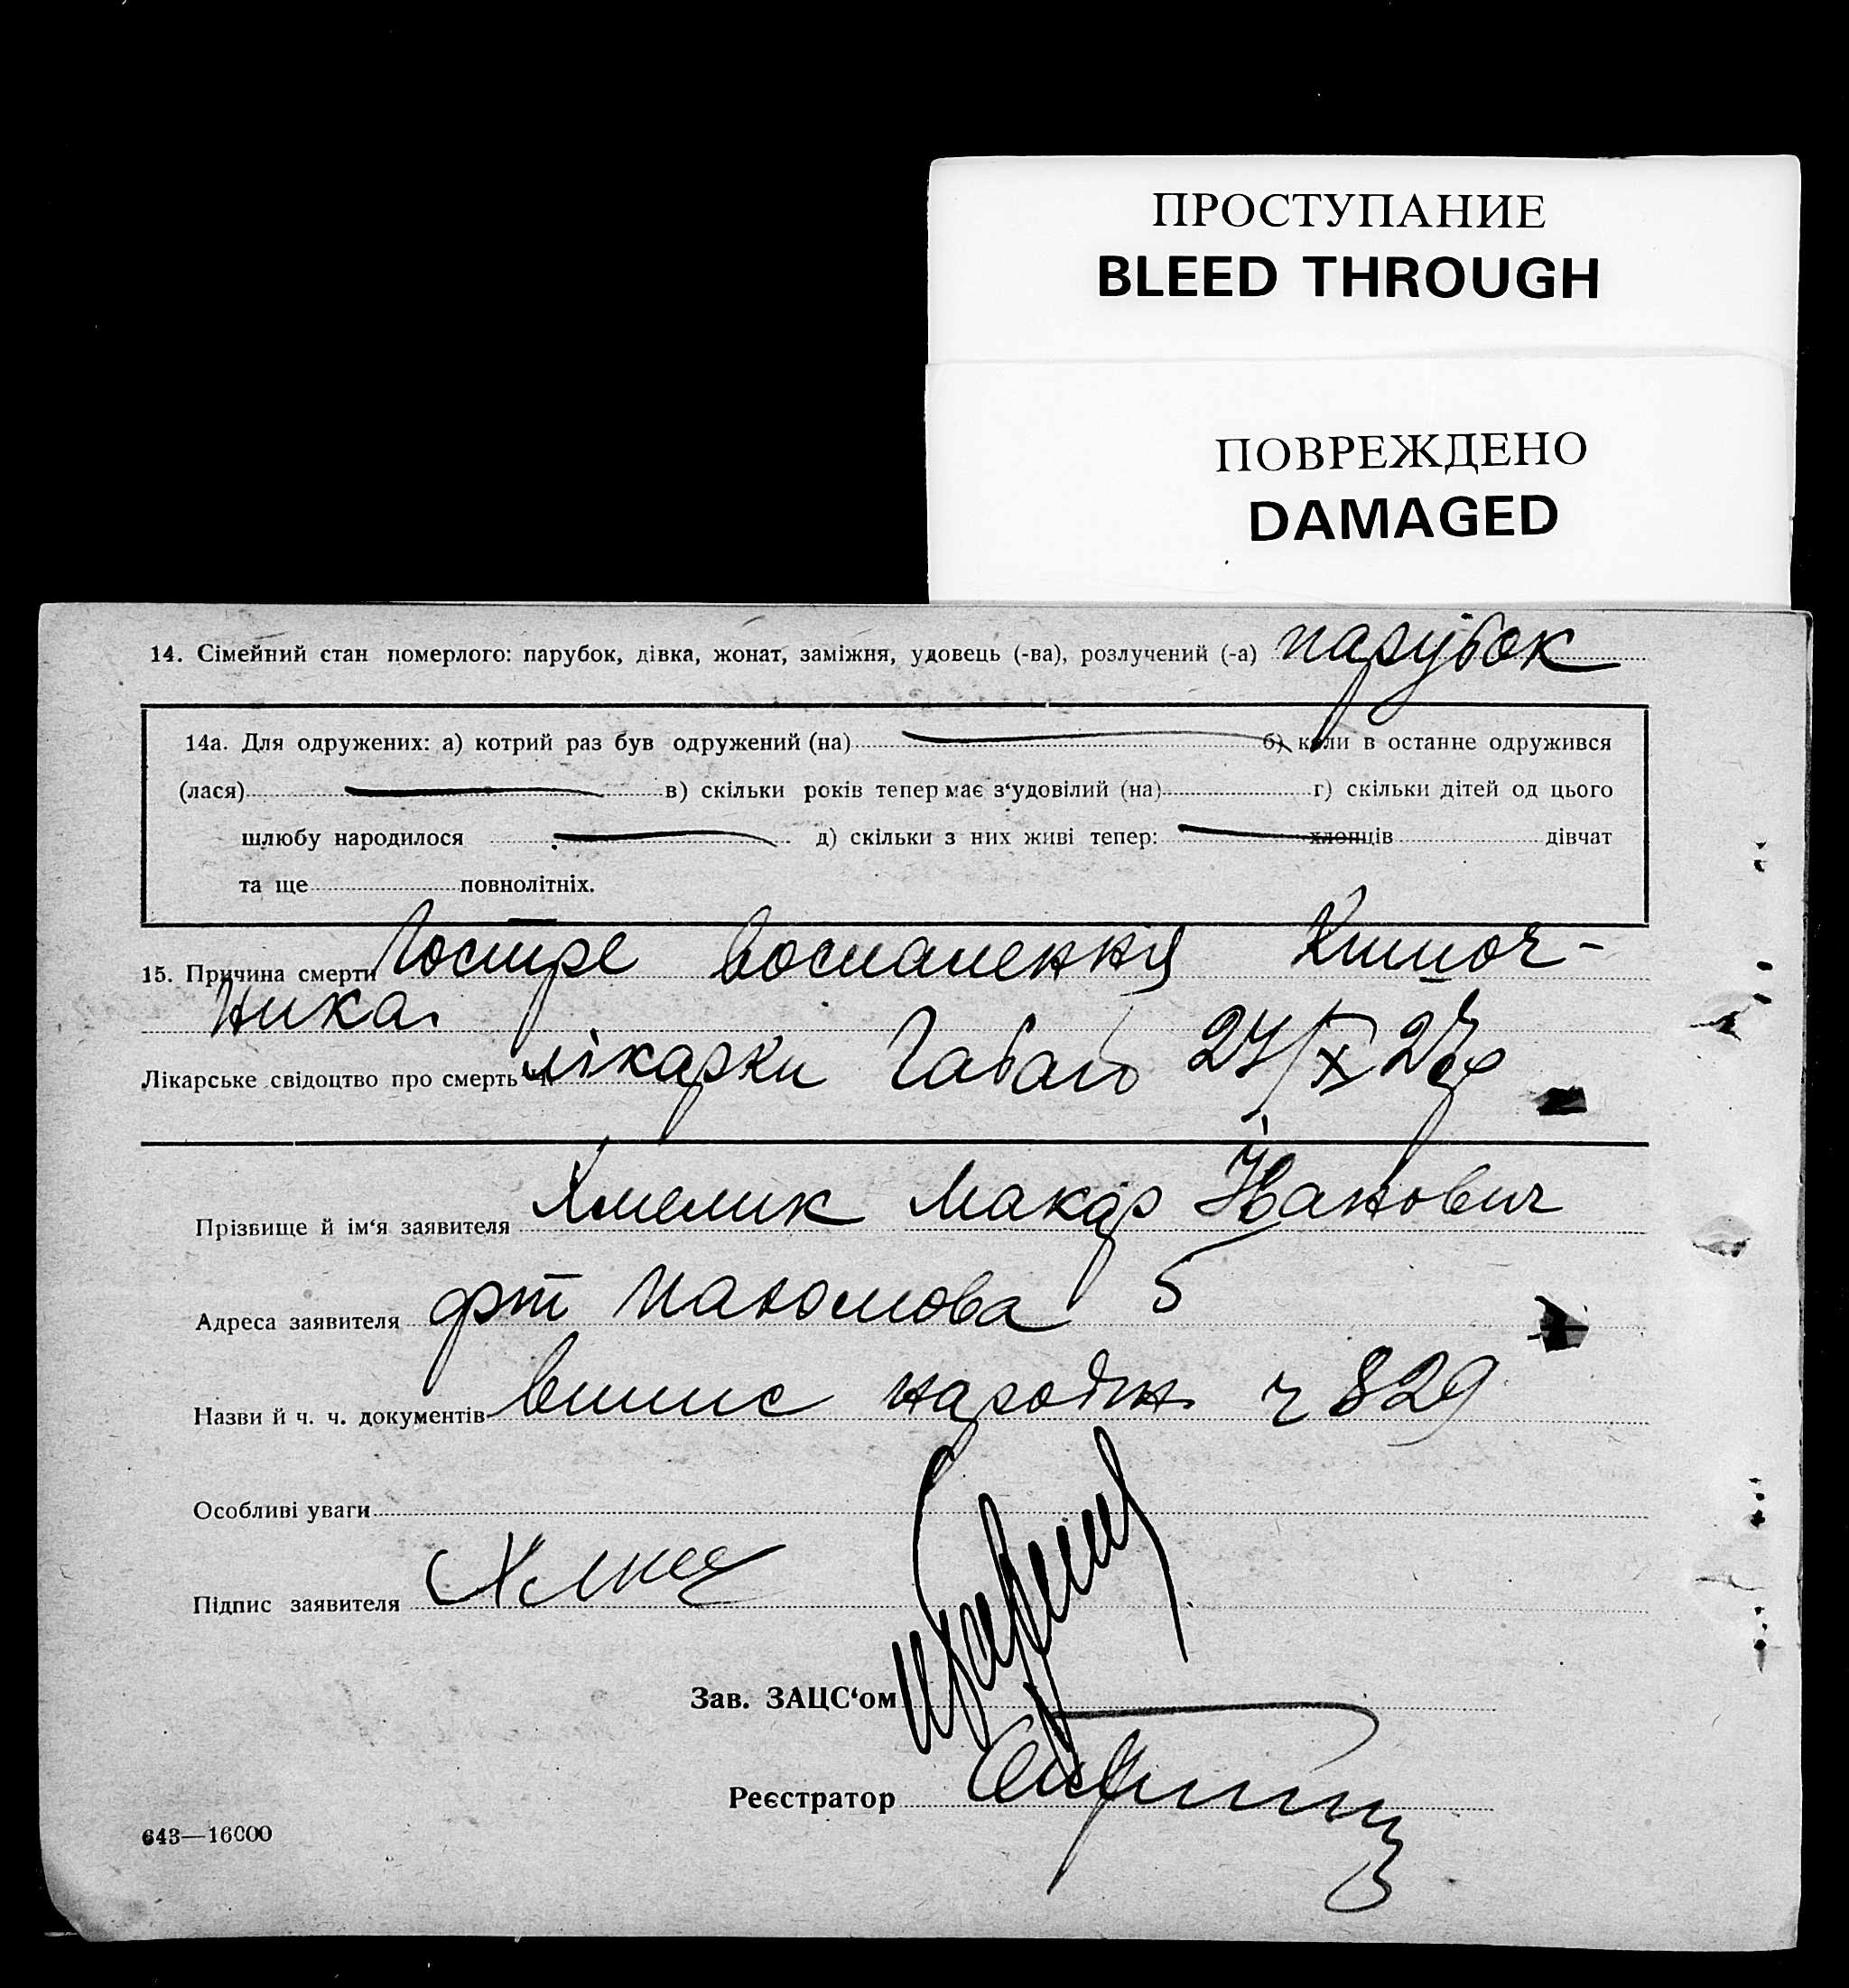 ПРОСТУПАНИЕ
BLEED THROUGH
ПОВРЕЖДЕНО
DAMAGED
14. Сімейний стан померлого: парубок, дівка, жонат, заміжня, удовець (-ва), розлучений (-а) парубок
14а. Для одружених: а) котрий раз був одружений (на) б) коли в останне одружився
(лася) в) скільки років тепер має з‘удовілий (на) г) скільки дітей од цього
шлюбу народилося д) скільки з них живі тепер: хлопців дівчат
та ще повнолітніх.
15. Причина смерти Гостре воспалення Кишоч-
ника.
Лікарське свідоцтво про смерть Ч. лікарки Габай 27/X 27р
Прізвище й ім‘я заявителя Хмелик Макар Іванович
Адреса заявителя 5
Назви й ч. ч. документів випис народж ч 829
Особливі уваги
Підпис заявителя
Зав. ЗАЦС‘ом
Реєстратор
643—16000